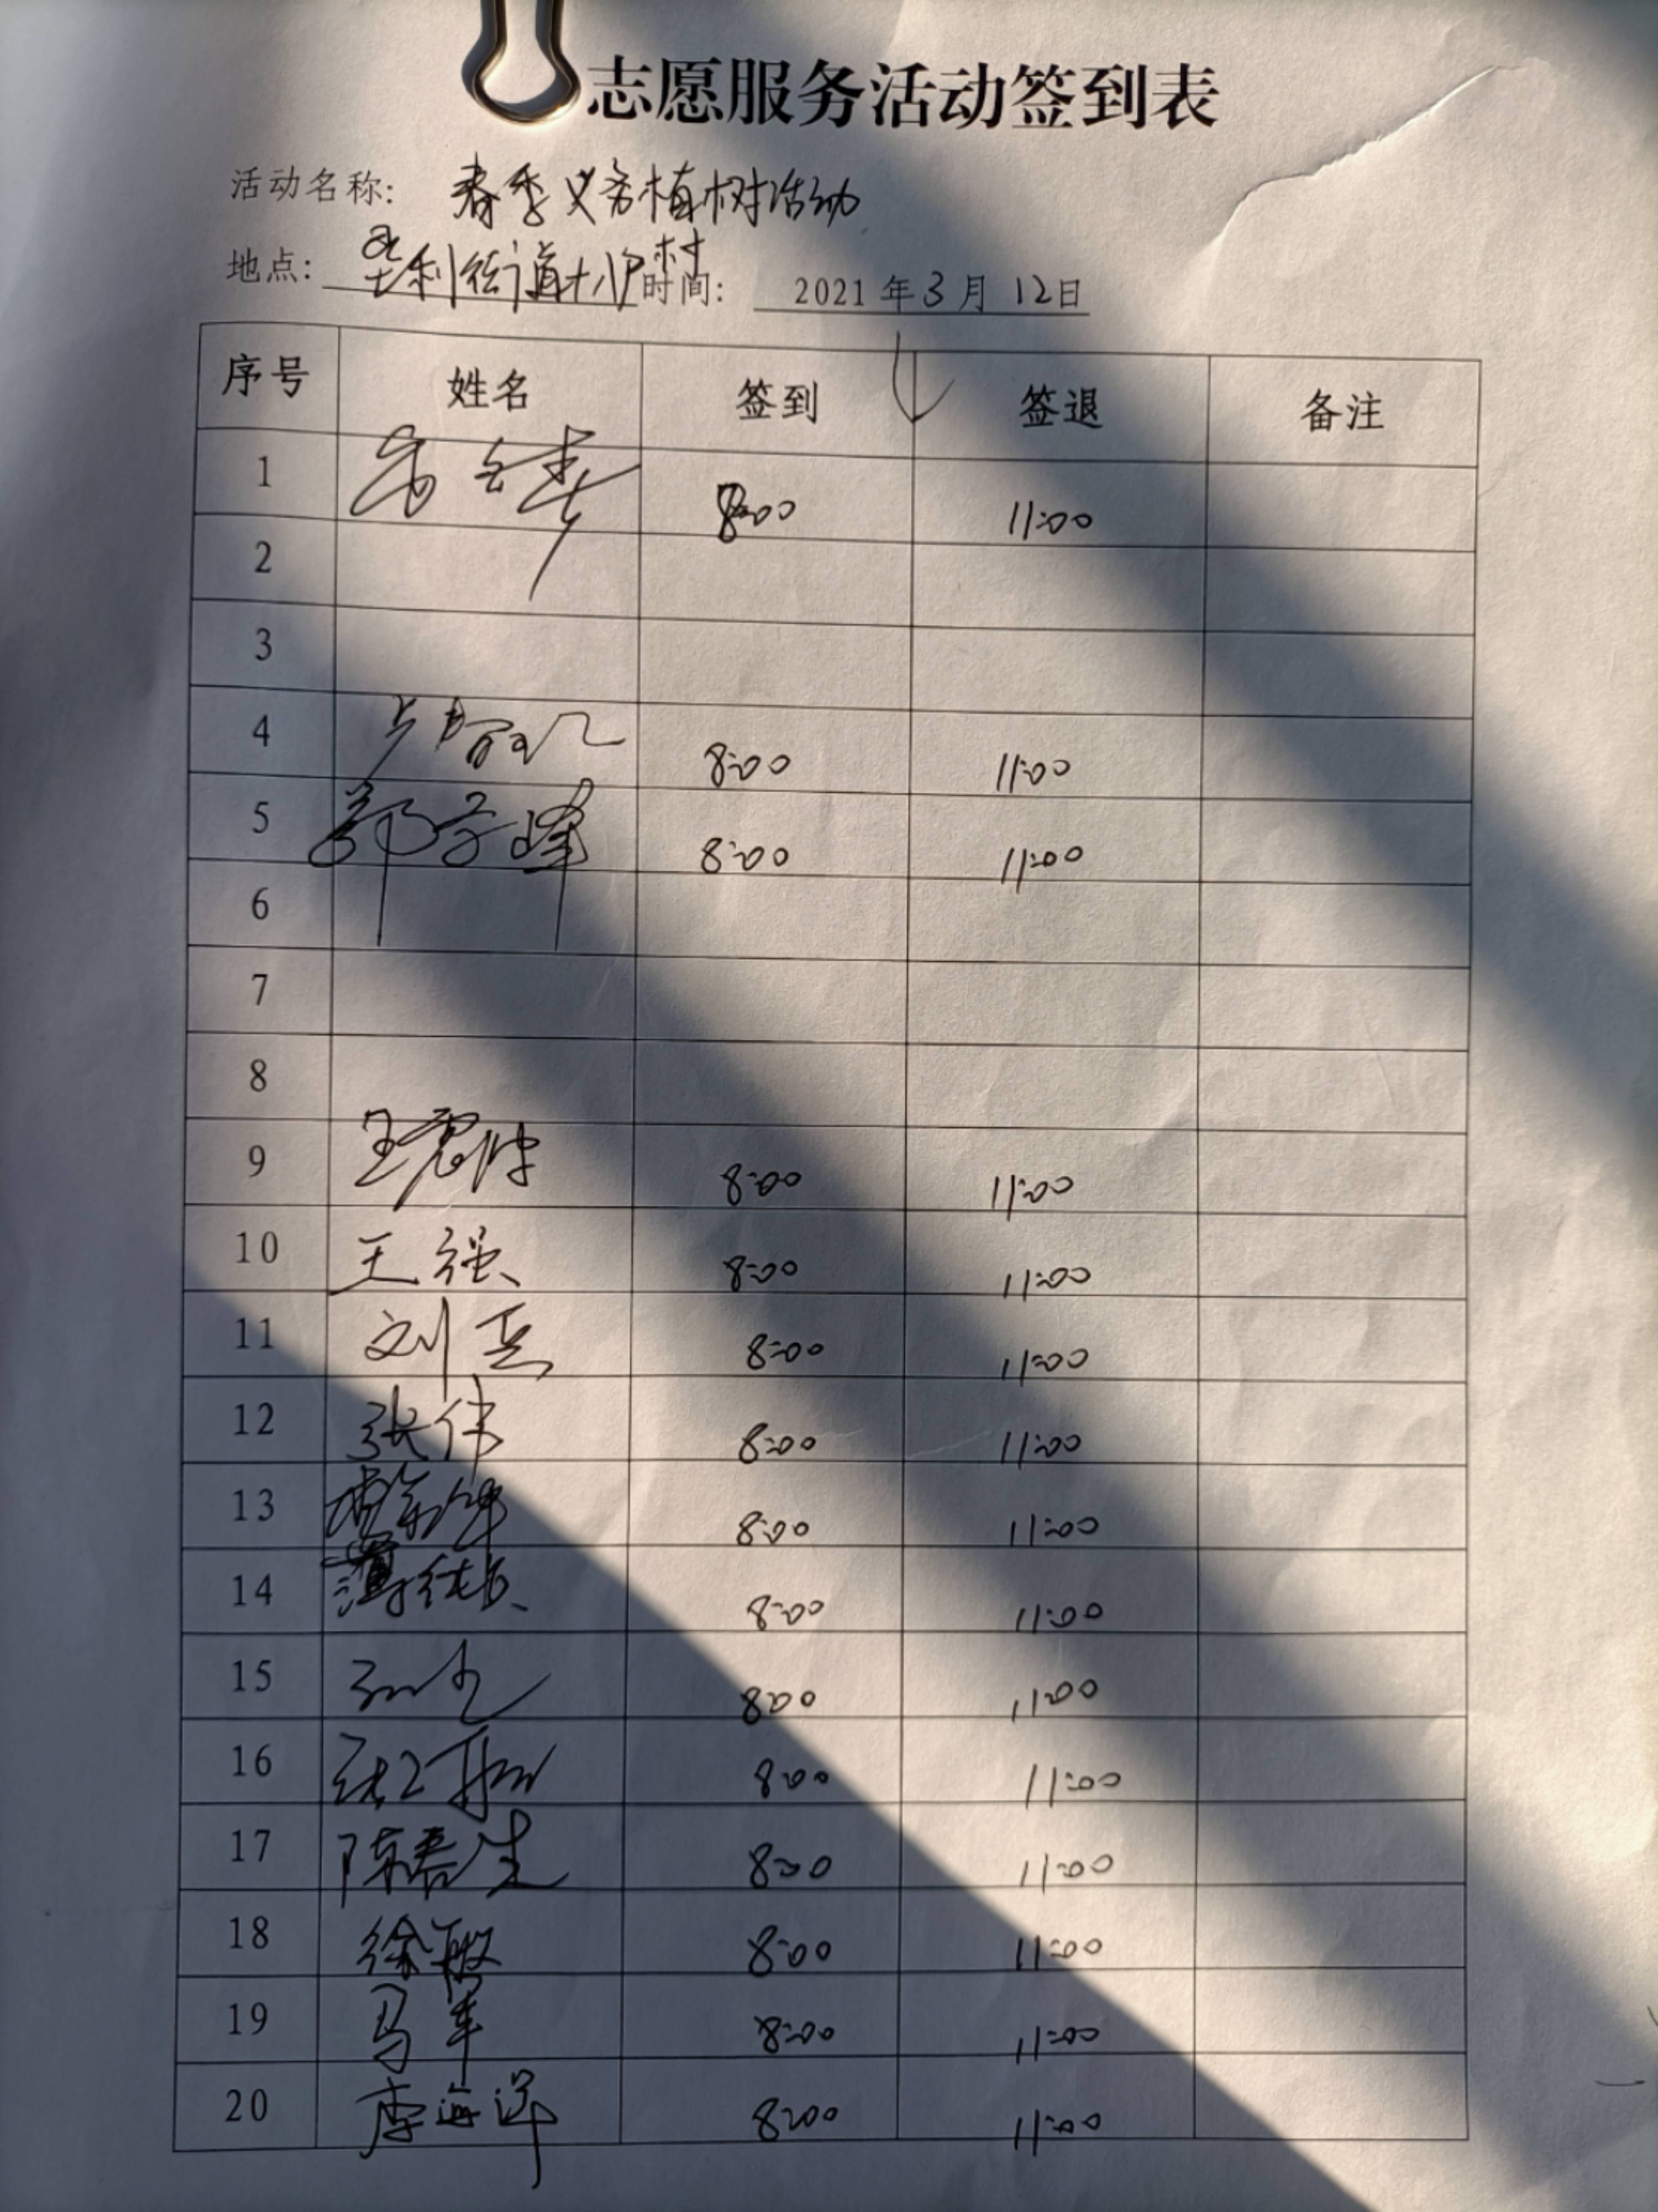 志愿服务活动签到表
活动名称: 春季义务植树活动
地点: 垦利街道十八户村 时间: 2021年3月12日
序号 姓名 签到 签退 备注
1 8:00 11:00
2
3
4 8:00 11:00
5 郭子峰 8:00 11:00
6
7
8
9 王君波 8:00 11:00
10 王强 8:00 11:00
11 刘兵 8:00 11:00
12 张伟 8:00 11:00
13 8:00 11:00
14 8:00 11:00
15 8:00 11:00
16 8:00 11:00
17 陈春生 8:00 11:00
18 徐敏 8:00 11:00
19 马军 8:00 11:00
20 李海洋 8:00 11:00